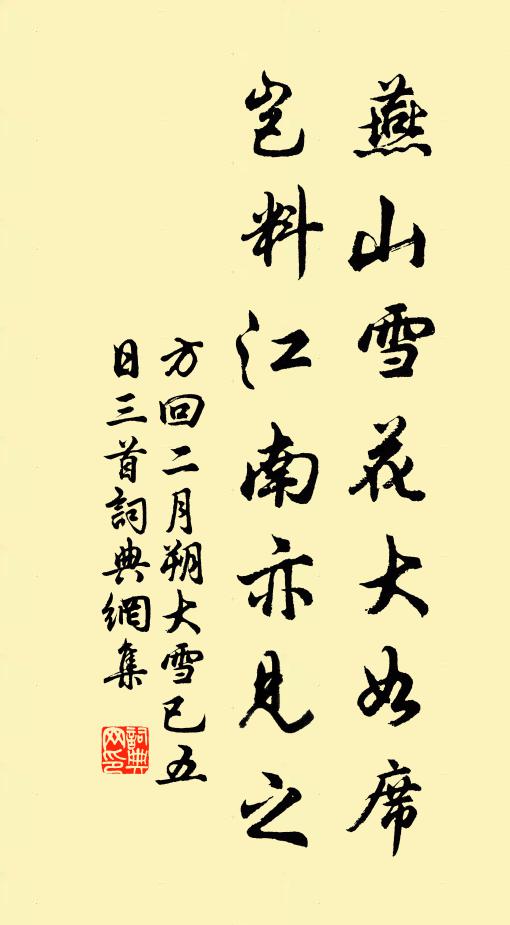 燕山雪花大如席
岂料江南亦見之
方回二月朔大雪已五
日三首詞典網集
詞典网印